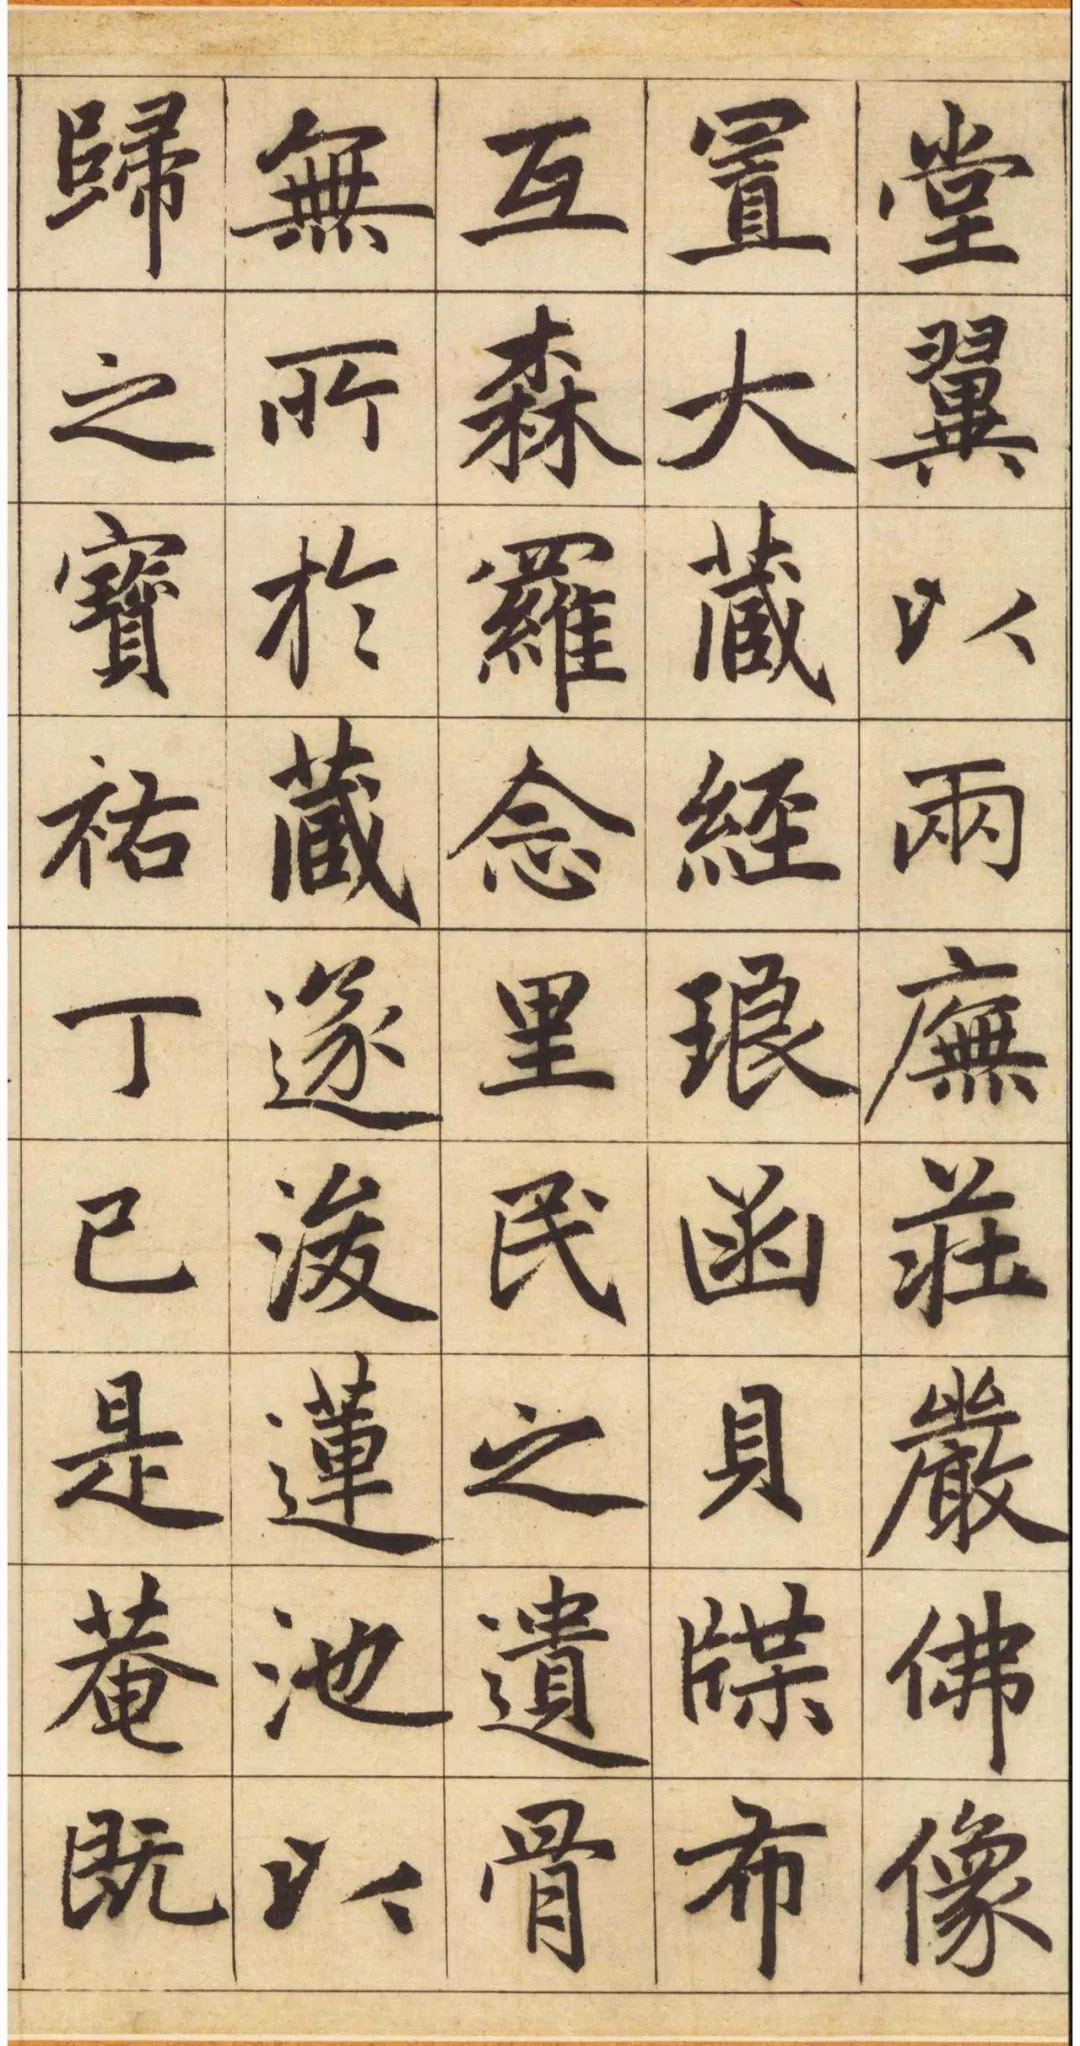 堂翼以兩廡莊嚴佛像
置大藏經琅函貝牒布
互森羅念里民之遺骨
無所於藏遂浚蓮池以
歸之寶祐丁巳是菴既